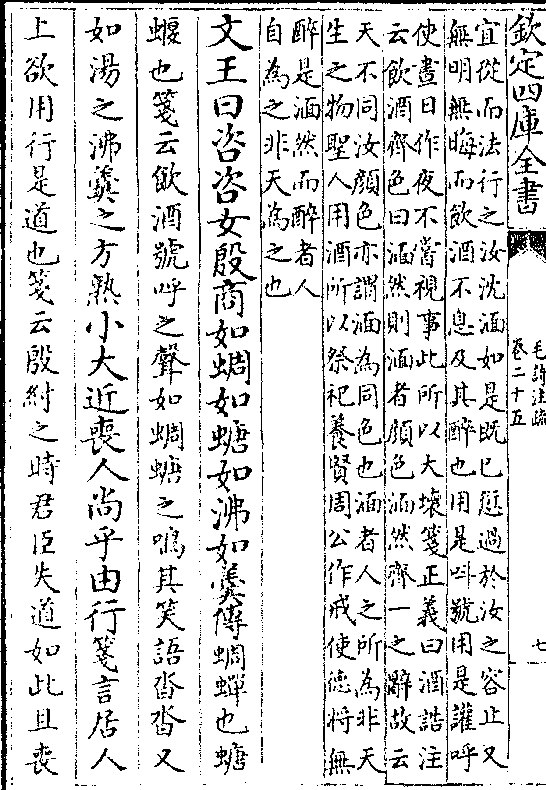 欽定四庫全書
毛詩注疏
卷二十五
七
宜從而法行之汝沈湎如是既已愆過於汝之容止又
無明無晦而飲酒不息及其醉也用是叫號用是讙呼
使晝日作夜不嘗視事此所以大壞箋正義曰酒誥注
云飲酒齊色曰湎然則湎者顔色湎然齊一之辭故云
天不同汝顔色亦謂湎為同色也湎者人之所為非天
生之物聖人用酒所以祭祀養賢周公作戒使德將無
醉是湎然而醉者人
自為之非天為之也
文王曰咨咨女殷商如蜩如螗如沸如羹傳蜩蟬也螗
蝘也箋云飲酒號呼之聲如蜩螗之鳴其笑語沓沓又
如湯之沸羹之方熟小大近喪人尚乎由行箋言居人
上欲用行是道也箋云殷紂之時君臣失道如此且喪